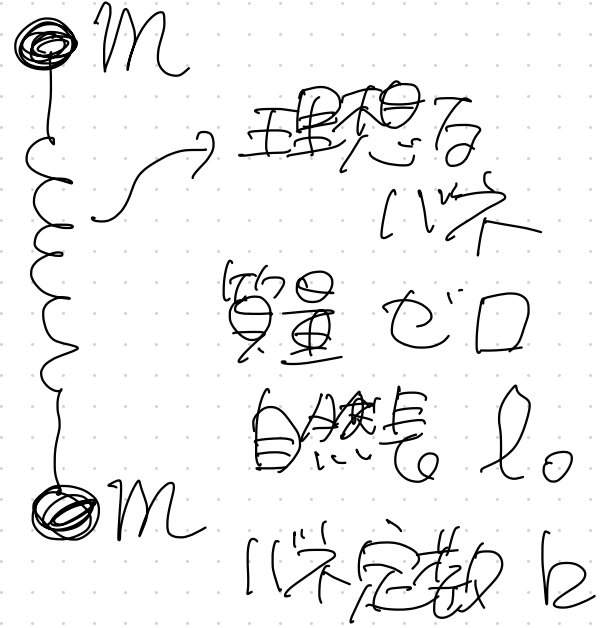 m
理想
バネ
質量 ゼロ
自然長 l₀
m
バネ定数 k